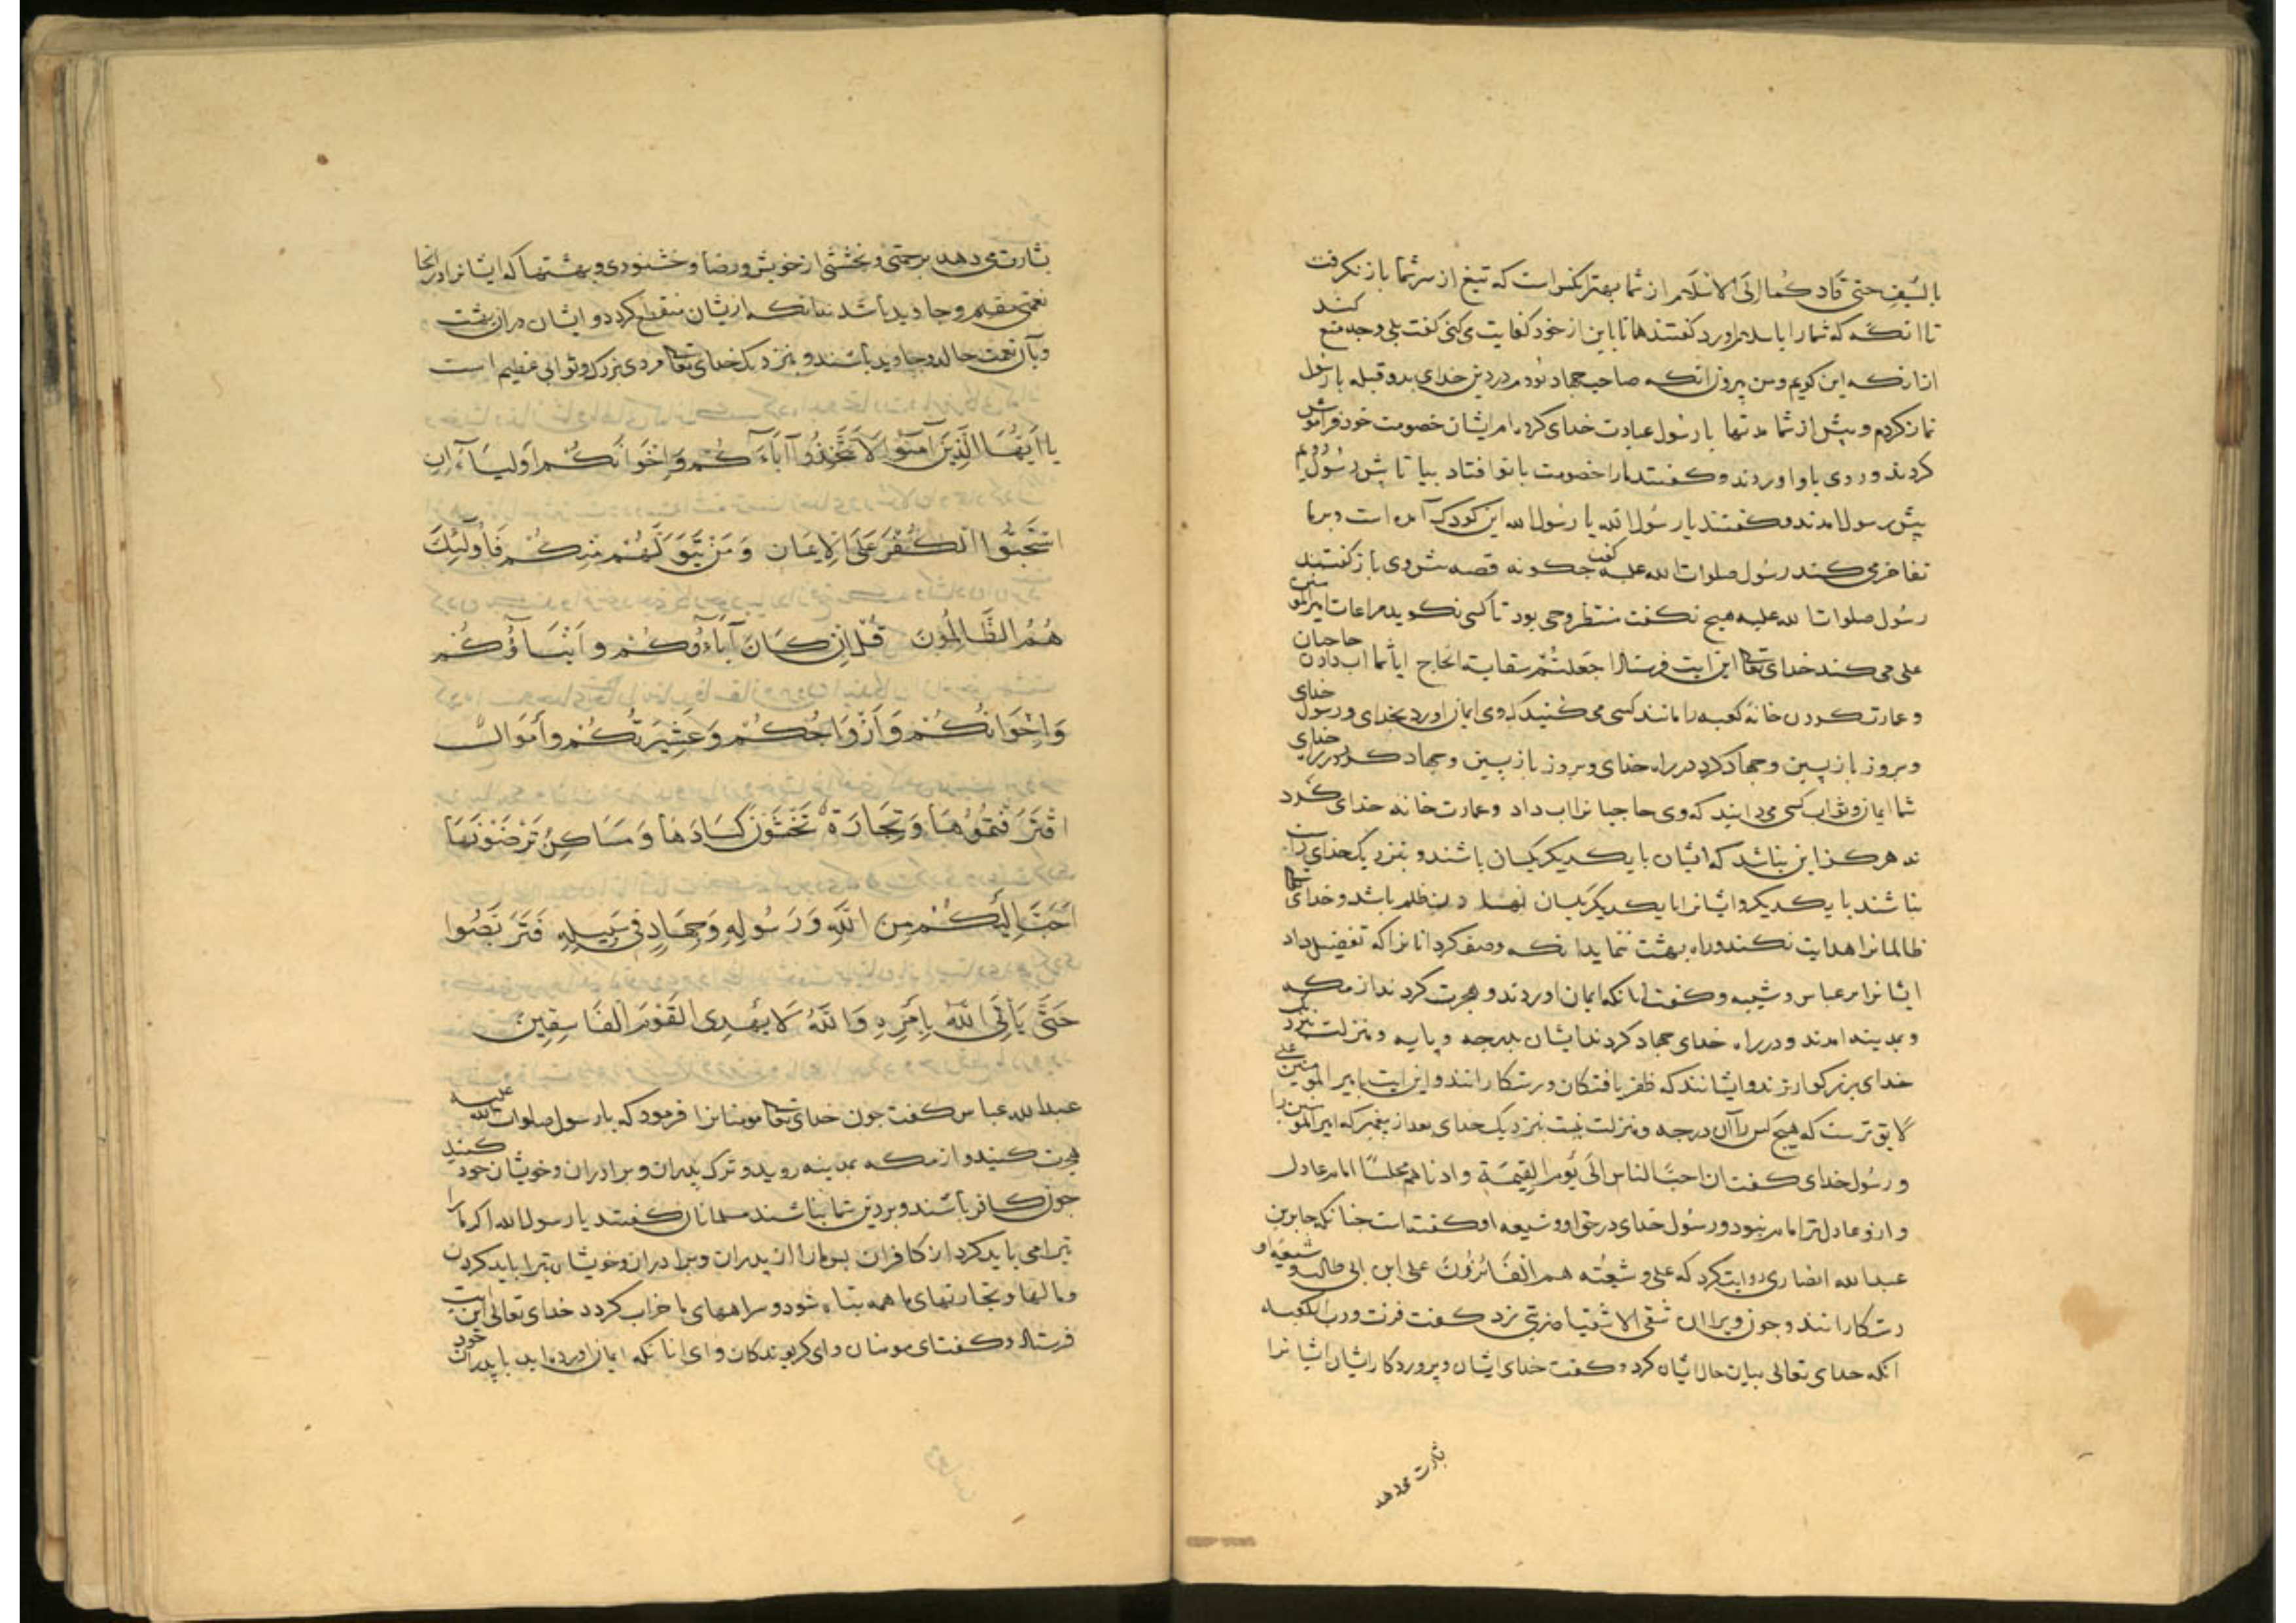 بالسیف حتی قادکما الی الاسلام از شما بهتر آنکس است که تیغ از سر شما باز نگرفت
تا انگه که شمارا باسلام اورد گفتند هانا باین از خود کفایت می کنی گفت بلی وجه منع کند
انا زنکه این کویم ومن پیروز انکه صاحب جهاد بودم در دین خدای بدو قبله با رسول
نماز کردم و پیش از شما مدتها با رسول عبادت خدای کرده ام ایشان خصومت خود فراموش
کردند و روی باو اوردند و کفتند مارا خصومت با تو افتاد بیا تا پیش رسول رویم
پیش رسول امدند و کفتند یا رسول الله یا رسول الله این کودک آمده است و بر ما
تفاخر می کند رسول صلوات الله علیه کفت جکونه قصه پیش وی باز کفتند
رسول صلوات الله علیه هیچ نکفت منتظر وحی بود تا کسی نکوید مراعات امیر المومنین
علی می کند خدای تعالی این ایت فرستاد اجعلتم سقایة الحاج ایا شما اب دادن حاجیان
و عمارت کردن خانه کعبه را مانند کسی می کنید که وی ایمان اورد بخدای و رسول خدای
و بروز باز پسین و جهاد کرد در راه خدای و بروز باز پسین و جهاد کرد در راه خدای
شما ایمان و ثواب کسی می دانید که وی حاجیانرا اب داد و عمارت خانه خدای کرد
نه هرکز این نباشد که ایشان با یکدیکر یکسان باشند و بنزدیک خدای راست
نباشند با یکدیکر و ایشانرا با یکدیکر یکسان نهند و این ظلم باشد و خدای تعالی
ظالمانرا هدایت نکند و راه بهشت ننماید انکه وصف کرد انانرا که تفضیل داد
ایشانرا بر عباس و شیبه و کفت انانکه ایمان اوردند و هجرت کردند از مکه
و بمدینه امدند و در راه خدای جهاد کردند ایشان بدرجه و پایه و منزلت بنزدیک
خدای بزرکوارترند و ایشانند که ظفر یافتکان و رستکارانند و این ایت بامیر المومنین علی
لایق ترست که هیچ کس را آن درجه و منزلت نیست بنزدیک خدای بعد از پیغمبر که امیر المومنین را
و رسول خدای کفت ان احب الناس الی یوم القیمة و ادناهم مجلسا امام عادل
و ازو عادل تر امام نبود و رسول خدای در حق او و شیعه او کفته است جنانکه جابر بن
عبدالله انصاری روایت کرد که علی و شیعته هم الفائزون علی ابن ابی طالب و شیعه او
رستکارانند و جون ویرا ان شقی الاشقیا ضربتی بزد کفت فزت و رب الکعبه
انکه خدای تعالی بیان حال ایشان کرد و کفت خدای ایشان و پروردکار ایشان ایشانرا
بشارت می دهد
بشارت می دهد برحمتی و بخششی از خویش و رضا و خشنودی و بهشتها که ایشانرا در انجا
نعمتی مقیم و جاوید باشد نه انکه از یشان منقطع کردد و ایشان در ان بهشت
و بآن نعمت خالد و جاوید باشند و بنزدیک خدای تعالی مزدی بزرک و ثوابی عظیم است
یا ایها الذین آمنوا لا تتخذوا آباءکم واخوانکم اولیاء ان
استحبوا الکفر علی الایمان ومن یتولهم منکم فاولئک
هم الظالمون قل ان کان آباؤکم وابناؤکم
واخوانکم وازواجکم وعشیرتکم وأموال
اقترفتموها وتجارة تخشون کسادها ومساکن ترضونها
احب الیکم من الله ورسوله وجهاد فی سبیله فتربصوا
حتی یأتی الله بامره والله لا یهدی القوم الفاسقین
عبدالله عباس کفت جون خدای تعالی مومنانرا فرمود که با رسول صلوات الله علیه
هجرت کنید و از مکه بمدینه روید و ترک پدران و برادران و خویشان خود کنید
جون کافر باشند و بر دین شما نباشند مسلمانان کفتند یا رسول الله اکر ما را
تبرا می باید کرد از کافران پس مارا از پدران و برادران و خویشان تبرا باید کردن
و مالها و تجارتهای ما همه تباه شود و سراهای ما خراب کردد خدای تعالی این ایت
فرستاد و کفت ای مومنان و ای کرویدکان و ای انانکه ایمان اورده اید با پدران خود